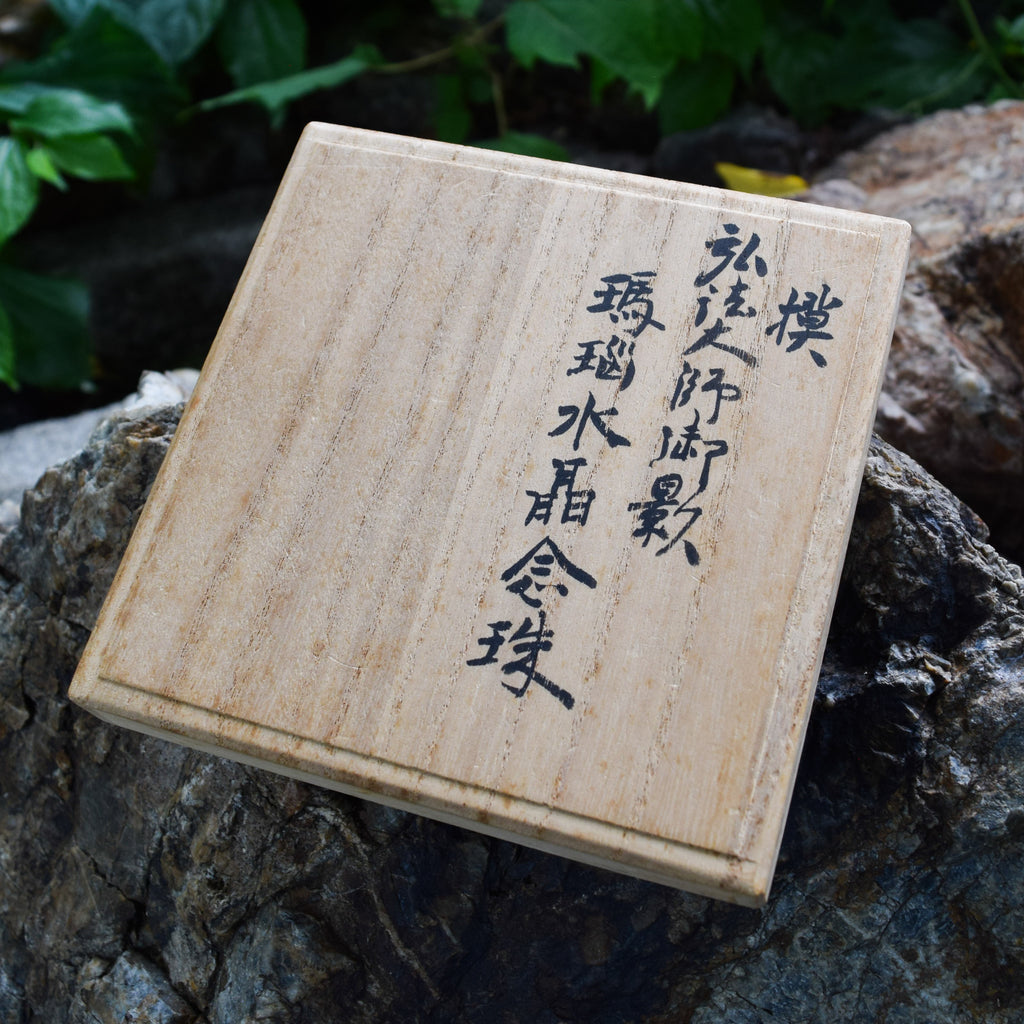 模
弘法大師御影
瑪瑙水晶念珠